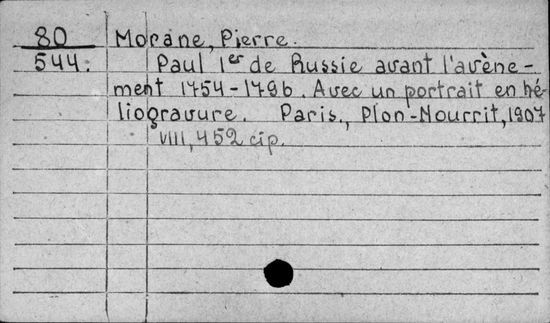 80 Morane, Pierre.
544. Paul 1er de Russie avant l'avène-
ment 1754-1796. Avec un portrait en hé-
liogravure. Paris., Plon-Nourrit, 1907
VIII, 452 cip.